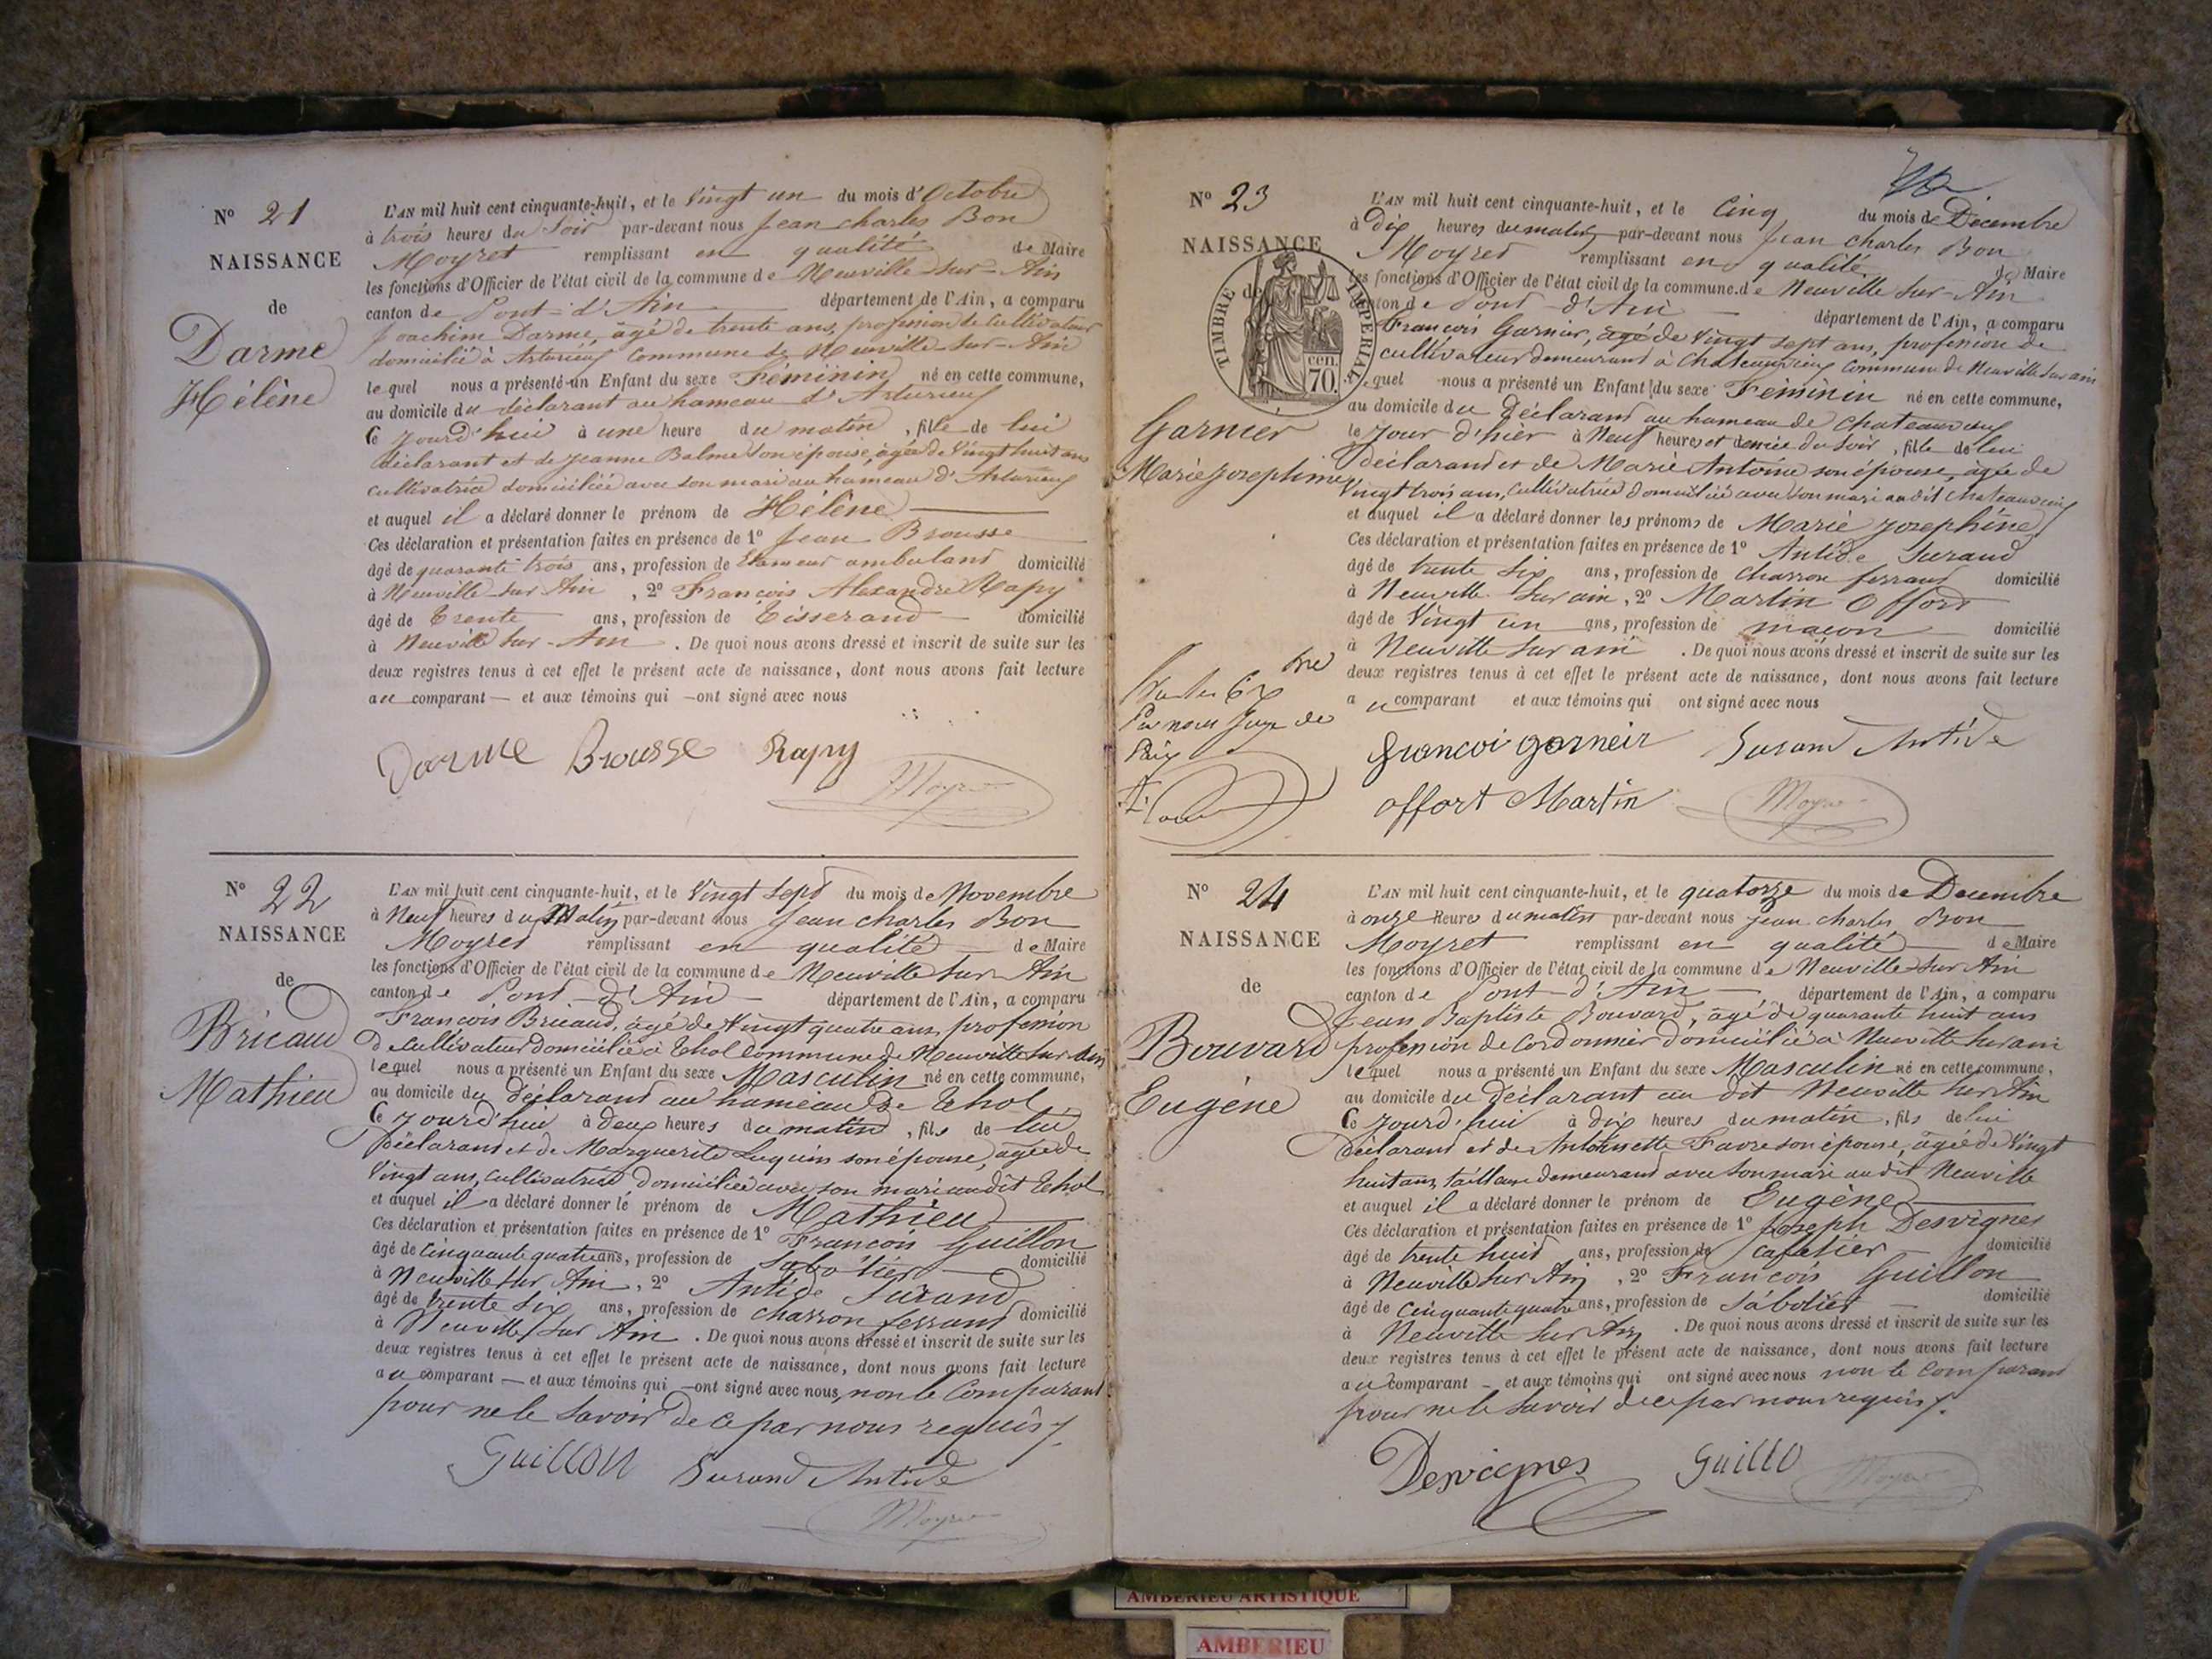 N° 21
NAISSANCE
de
Darme
Hélène
L'AN mil huit cent cinquante-huit, et le Vingt un du mois d'Octobre
à trois heures du Soir par-devant nous Jean charles Bon
Moyret remplissant en qualité de Maire
les fonctions d'Officier de l'état civil de la commune de Neuville sur-Ain
canton de Pont-d'Ain département de l'Ain, a comparu
Joachim Darme, âgé de trente ans, profession de Cultivateur
domicilié à Arturieux Commune de Neuville-sur-Ain
lequel nous a présenté un Enfant du sexe Féminin né en cette commune,
au domicile du déclarant au hameau d'Arturieux
Ce jourd'hui à une heure du matin, fille de lui
déclarant et de Jeanne Balme son épouse, âgée de Vingt huit ans
cultivatrice domiciliée avec son mari au hameau d'Arturieux
et auquel il a déclaré donner le prénom de Hélène
Ces déclaration et présentation faites en présence de 1° Jean Brousse
âgé de quarante trois ans, profession de Etameur ambulant domicilié
à Neuville sur Ain, 2° François Alexandre Rapy
âgé de trente ans, profession de Tisserand domicilié
à Neuville sur-Ain. De quoi nous avons dressé et inscrit de suite sur les
deux registres tenus à cet effet le présent acte de naissance, dont nous avons fait lecture
au comparant — et aux témoins qui — ont signé avec nous
Darme Brousse Rapy
Moyret
N° 22
NAISSANCE
de
Bricaud
Mathieu
L'AN mil huit cent cinquante-huit, et le Vingt Sept du mois de Novembre
à Neuf heures du Matin par-devant nous Jean charles Bon
Moyret remplissant en qualité de Maire
les fonctions d'Officier de l'état civil de la commune de Neuville sur Ain
canton de Pont-d'Ain département de l'Ain, a comparu
François Bricaud, âgé de Vingt quatre ans, profession
de Cultivateur domicilié à Thol Commune de Neuville sur Ain
lequel nous a présenté un Enfant du sexe Masculin né en cette commune,
au domicile du déclarant au hameau de Thol
Ce jourd'hui à deux heures du matin, fils de lui
déclarant et de Marguerite Luquin son épouse, âgée de
Vingt ans, cultivatrice, domiciliée avec son mari audit Thol
et auquel il a déclaré donner le prénom de Mathieu
Ces déclaration et présentation faites en présence de 1° François Guillon
âgé de Cinquante quatre ans, profession de Sabotier domicilié
à Neuville sur Ain, 2° Antide Surand
âgé de trente six ans, profession de charron ferrant domicilié
à Neuville sur Ain. De quoi nous avons dressé et inscrit de suite sur les
deux registres tenus à cet effet le présent acte de naissance, dont nous avons fait lecture
au comparant — et aux témoins qui — ont signé avec nous, non le Comparant
pour ne le savoir de ce par nous requis
Guillon Surand Antide
Moyret
N° 23
NAISSANCE
de
TIMBRE IMPERIAL
70 cen
Garnier
Marie Josephine
par nous Juge de
Paix
L'AN mil huit cent cinquante-huit, et le Cinq du mois de Décembre
à Dix heures du matin par-devant nous Jean charles Bon
Moyret remplissant en qualité de Maire
les fonctions d'Officier de l'état civil de la commune de Neuville sur-Ain
canton de Pont-d'Ain département de l'Ain, a comparu
François Garnier, âgé de Vingt Sept ans, profession de
cultivateur demeurant à Chateauvieux Commune de Neuville sur ain
lequel nous a présenté un Enfant du sexe Féminin né en cette commune,
au domicile du Déclarant au hameau de Chateauvieux
le Jour d'hier à Neuf heures et demie du Soir, fille de lui
déclarant et de Marie Antoine son épouse, âgée de
Vingt trois ans, Cultivatrice domiciliée avec son mari audit chateauvieux
et auquel il a déclaré donner les prénoms de Marie Josephine
Ces déclaration et présentation faites en présence de 1° Antide Surand
âgé de trente Six ans, profession de Charron ferrant domicilié
à Neuville Sur ain, 2° Martin Offort
âgé de Vingt un ans, profession de maçon domicilié
à Neuville Sur ain. De quoi nous avons dressé et inscrit de suite sur les
deux registres tenus à cet effet le présent acte de naissance, dont nous avons fait lecture
au comparant et aux témoins qui ont signé avec nous
francoi garneir Surand Antide
offort Martin Moyret
N° 24
NAISSANCE
de
Bouvard
Eugène
L'AN mil huit cent cinquante-huit, et le quatorze du mois de Decembre
à onze Heures du matin par-devant nous Jean charles Bon
Moyret remplissant en qualité de Maire
les fonctions d'Officier de l'état civil de la commune de Neuville sur Ain
canton de Pont-d'Ain département de l'Ain, a comparu
Jean Baptiste Bouvard, âgé de quarante huit ans
profession de Cordonnier domicilié à Neuville sur ain
lequel nous a présenté un Enfant du sexe Masculin né en cette commune,
au domicile du Déclarant au dit Neuville sur Ain
Ce jourd'hui à dix heures du matin, fils de lui
déclarant et de Antoinette Favre son épouse, âgée de Vingt
huit ans, tailleuse demeurant avec son mari audit Neuville
et auquel il a déclaré donner le prénom de Eugène
Ces déclaration et présentation faites en présence de 1° Joseph Desvignes
âgé de trente huit ans, profession de cafetier domicilié
à Neuville sur Ain, 2° François Guillon
âgé de Cinquante quatre ans, profession de Sabotier domicilié
à Neuville sur Ain. De quoi nous avons dressé et inscrit de suite sur les
deux registres tenus à cet effet le présent acte de naissance, dont nous avons fait lecture
au comparant — et aux témoins qui ont signé avec nous non le comparant
pour ne le savoir de ce par nous requis.
Desvignes Guillo
Moyret
AMBERIEU ARTISTIQUE
AMBERIEU